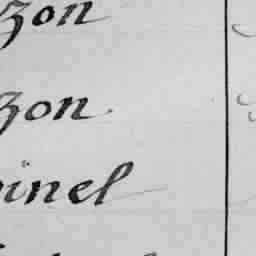 zon
zon.
inel